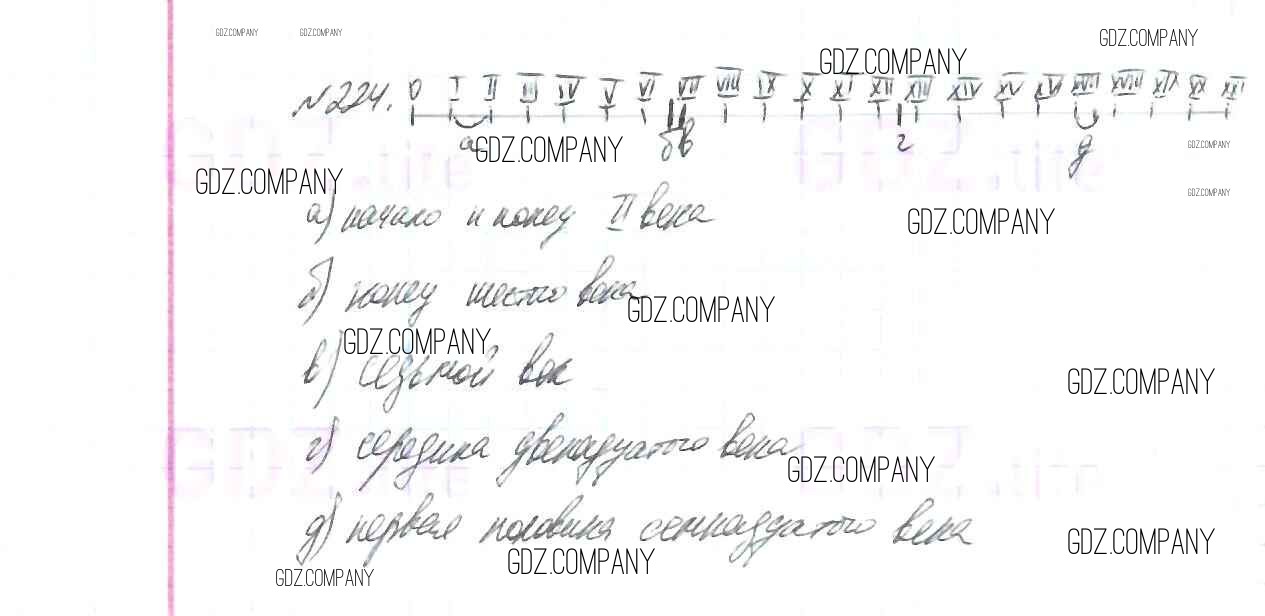 GDZ.COMPANY GDZ.COMPANY
GDZ.COMPANY
GDZ.COMPANY
№224. 0 I II III IV V VI VII VIII IX X XI XII XIII XIV XV XVI XVII XVIII XIX XX XXI
а б в г д
GDZ.COMPANY
GDZ.COMPANY
GDZ.COMPANY
GDZ.COMPANY
а) начало и конец II века
GDZ.COMPANY
б) конец шестого века
GDZ.COMPANY
GDZ.COMPANY
в) седьмой век
GDZ.COMPANY
г) середина двенадцатого века
GDZ.COMPANY
д) первая половина семнадцатого века
GDZ.COMPANY
GDZ.COMPANY
GDZ.COMPANY